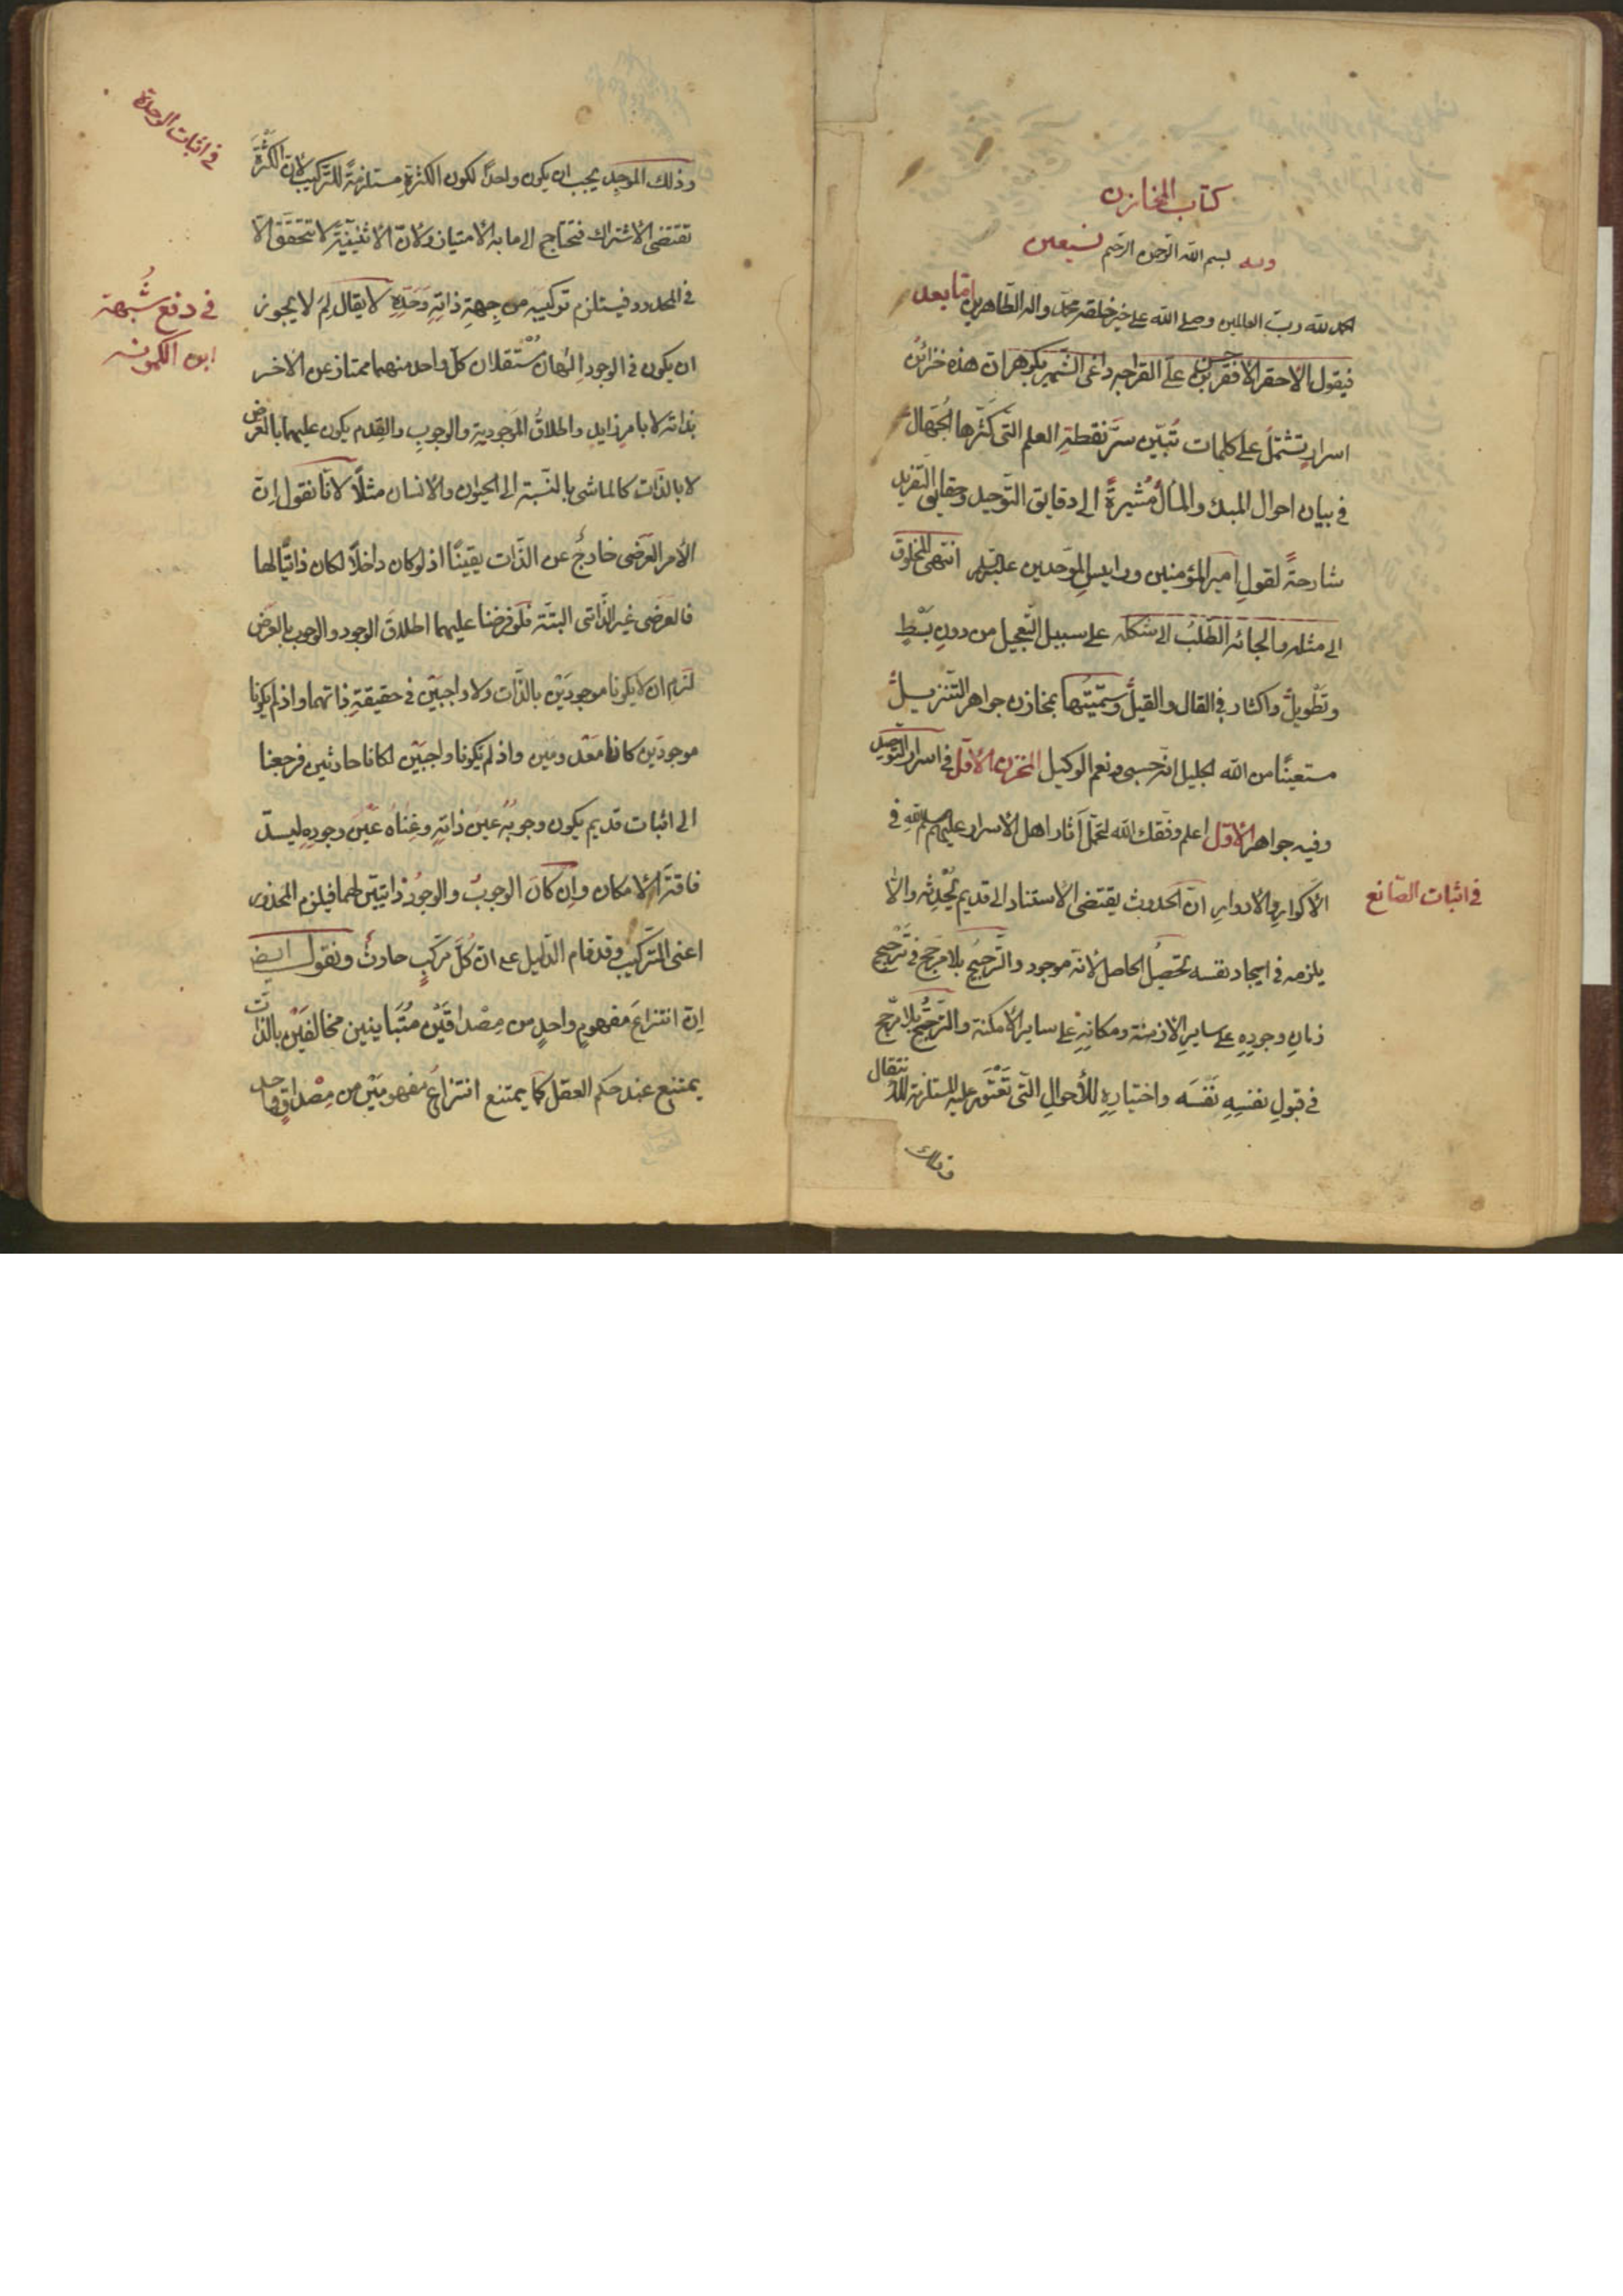 كتاب المخازن
وبه بسم الله الرحمن الرحيم نستعين
الحمد لله رب العالمين وصلى الله على خير خلقه محمد واله الطاهرين اما بعد
فيقول الاحقر الافقر حسن بن علي القراجه داغي الشهير بكوهر ان هذه خزائن
اسرار تشتمل على كلمات تُبيّن سرّ نقطة العلم التي كثّرها الجُهّال
في بيان احوال المبدء والمآل مُشيرةً الى دقايق التوحيد وحقايق التفريد
شارحةً لقول امير المؤمنين ورئيس الموحّدين عليه السلم انتهى المخلوق
الى مثله والجائه الطّلبُ الى شكله على سبيل التعجيل من دون بَسْطٍ
وتَطْويل واكثار في القال والقيل وسَمَّيتُها بمخازن جواهر التنزيل
مستعينًا من الله الجليل انه حسبى ونعم الوكيل المخزن الاوّل في اسرار التوحيد
وفيه جواهر الاوّل اعلم وفّقك الله لتحمّل آثار اهل الاسرار عليهم سلم الله في
الاكوار والادوار ان الحدوث يقتضى الاستناد الى قديم يُحْدِثه والّا
في اثبات الصّانع
يلزمه في ايجاد نفسه تحصيلُ الحاصل لانّه موجود والتّرجيحُ بلا مرجّح في تَرْجيح
زمانِ وجودِهِ على سايرِ الازمنة ومكانِهِ على ساير الامكنة والتّرجّحُ بلا مرجّح
في قبولِ نفسِهِ نَفْسَه واختيارِهِ للأحوالِ الّتى تَعْتَوِر عليه المستلزمة للانتقال
وذلك
في اثبات الوحدة
وذلك الموجِد يجب ان يكون واحدًا لكون الكثرةِ مستلزمةً للتّركيب لانّ الكَثْرَةَ
تقتضى الاشتراك فتحتاج الى ما به الامتياز ولانّ الاثنينيّة لا تتحقّق الّا
في المحدود فيستلزم تركيبه من جِهةِ ذاتِهِ وَحَدِّهِ لا يقال لِمَ لا يجوز
في دفع شُبهة
ابن الكمونه
ان يكون في الوجود الهان مُستقلان كلّ واحد منهما ممتاز عن الاخر
بذاته لا بامرٍ زايدٍ واطلاقُ الموجوديةِ والوجوبِ والقِدم يكون عليهما بالعرض
لا بالذّات كالماشى بالنّسبة الى الحيوان والانسان مثلًا لانّا نقول انّ
الأمر العَرَضى خارجٌ عن الذّات يقينًا اذ لو كان داخلًا لكان ذاتيًّا لها
فالعَرَضى غير الذّاتى البتّة فلو فرضنا عليهما اطلاقَ الوجود والوجوب بالعرض
لَزِم ان لا يكونا موجودَيْن بالذّات ولا واجبَيْن في حقيقةِ ذاتهما واذ لم يكونا
موجودَين كانا مَعْدومَين واذ لم يكونا واجبَيْن لكانا حادثين فرجعنا
الى اثبات قديم يكون وجوبُهُ عينَ ذاتِهِ وغِنَاهُ عَيْنَ وجودِهِ ليسدّ
فاقة الامكان وان كانَ الوجوبُ والوجودُ ذاتيَّين لهما فيلزم المحذور
اعنى التّركيب وقد قام الدّليل على انّ كُلّ مركّبٍ حادثٌ ونقول ايضا
انّ انتزاعَ مفهومٍ واحدٍ من مِصْداقَيْن مُتَبَاينين مخالفَيْن بالذّات
يمتنع عند حكم العقل كما يمتنع انتزاعُ مفهومَيْن من مِصْداقٍ واحدٍ